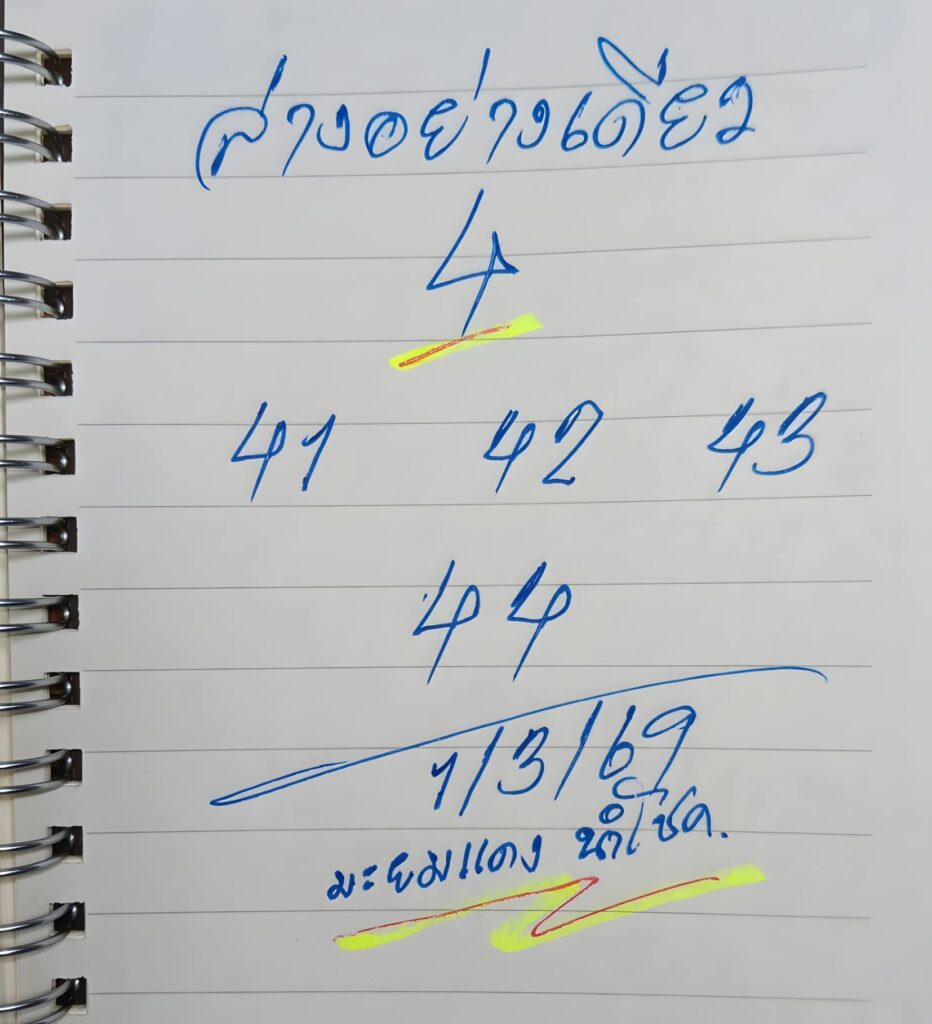 ล่างอย่างเดียว
4
41 42 43
44
1/3/69
มะยมแดง นำโชค.